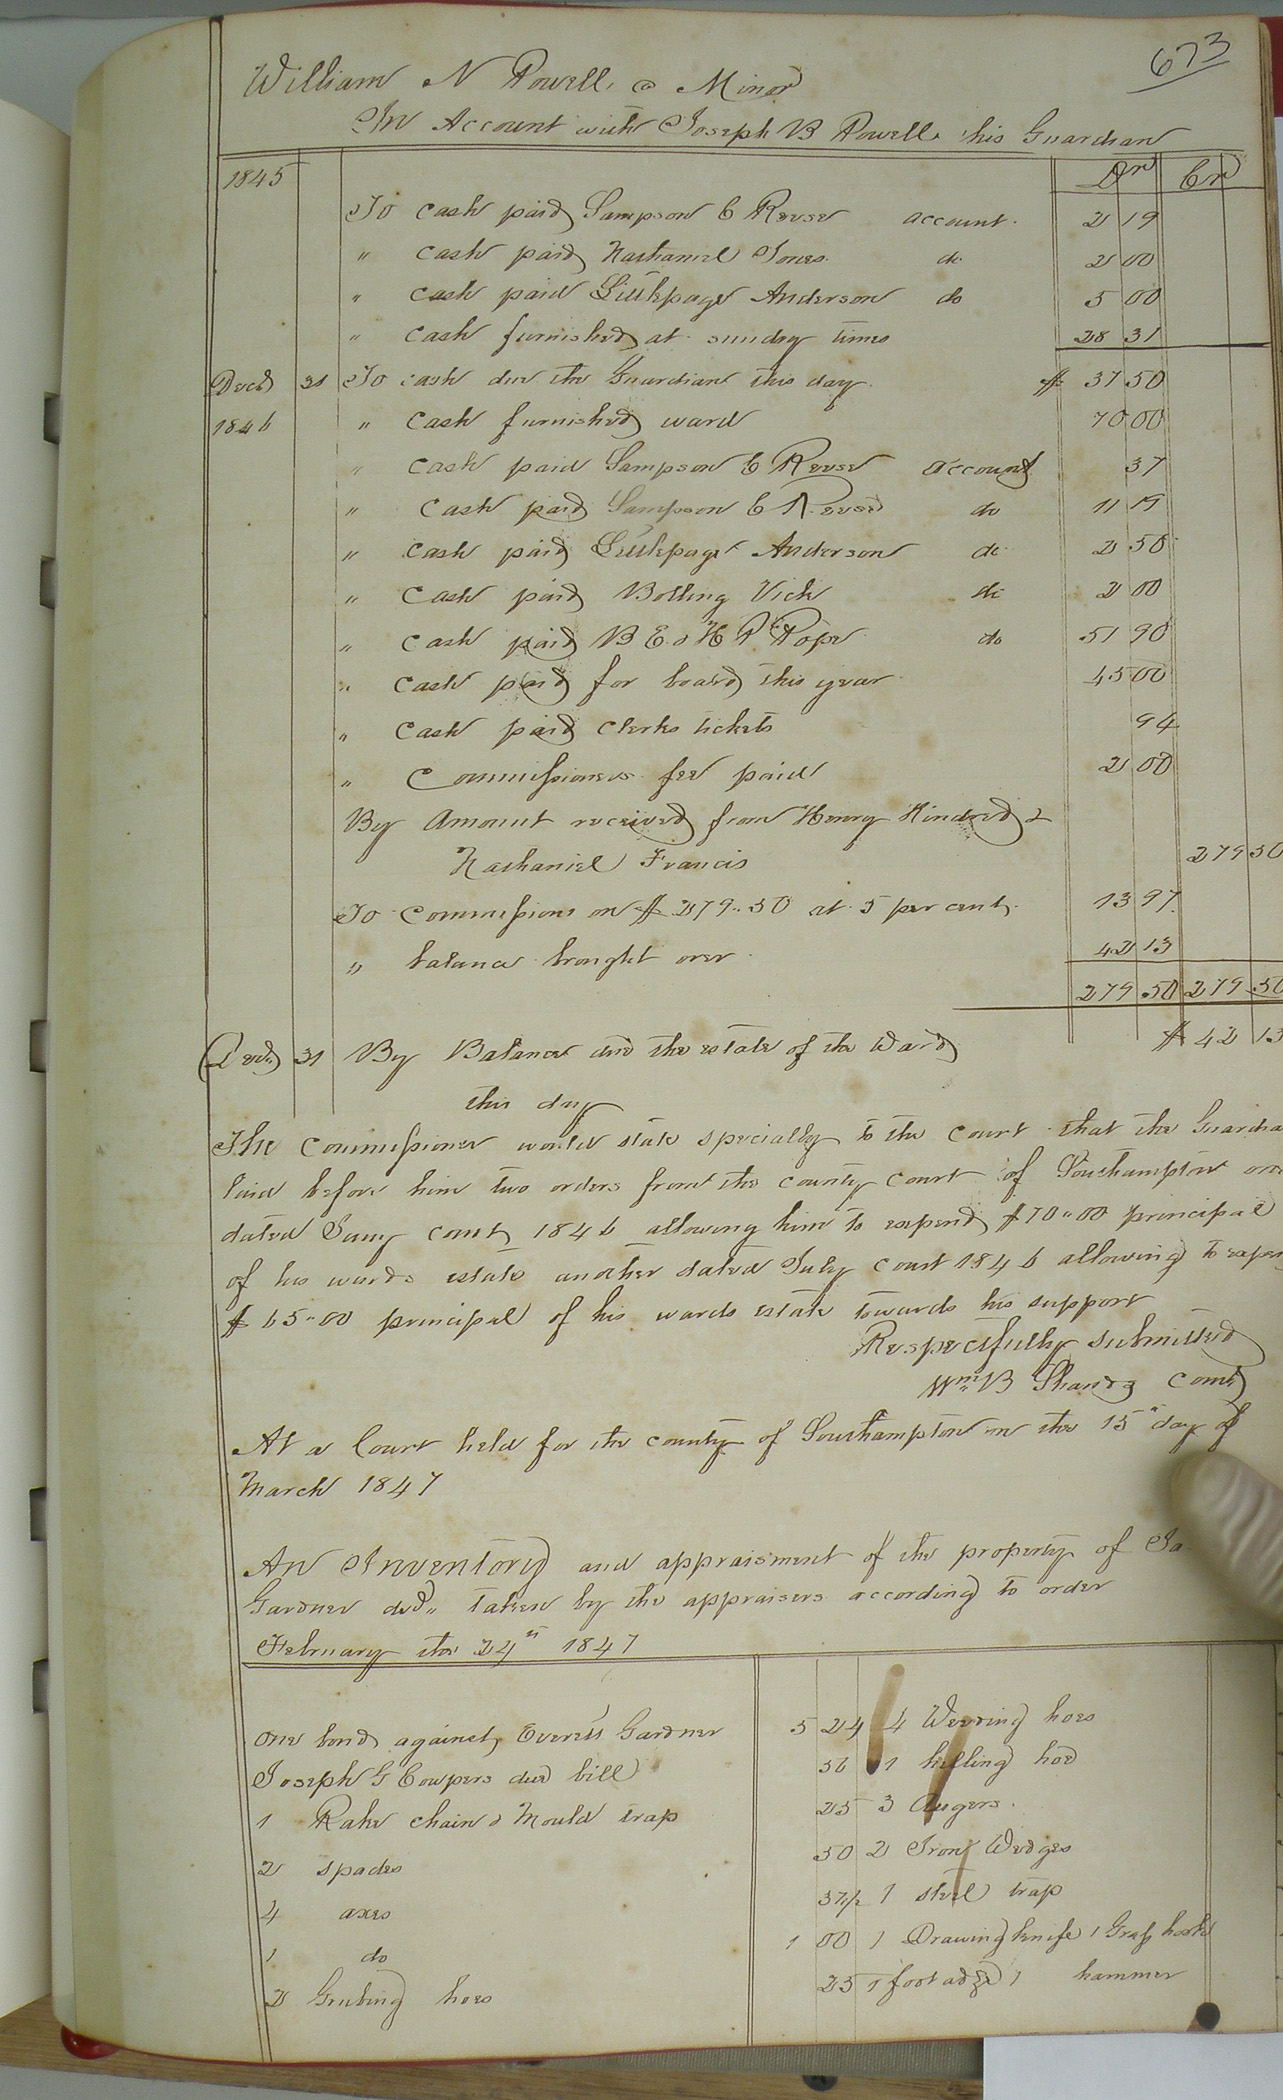 673
William N Powell, a Minor
In Account with Joseph B Powell his Guardian
1845 Dr Cr
To cash paid Sampson C Reese account 2 19
" cash paid Nathaniel Jones do 2 00
" cash paid Littlepage Anderson do 5 00
" cash furnished at sunday times 28 31
Decr 31 To cash due the Guardian this day $ 37 50
1846 " cash furnished ward 70 00
" cash paid Sampson C Reese account 37
" cash paid Sampson C Reese do 11 19
" cash paid Littlepage Anderson do 2 50
" cash paid Bolling Vick do 2 00
" cash paid B E & H P Pope do 51 90
" cash paid for board this year 45 00
" cash paid clerks tickets 94
" Commissioners fee paid 2 00
By Amount received from Henry Kindred &
Nathaniel Francis 279 50
To Commissions on $279.50 at 5 per cent 13 97
" balance brought over 42 13
279 50 279 50
Decr 31 By Balance due the estate of the Ward $ 42 13
this day
The Commissioner would state specially to the court that the Guardia
laid before him two orders from the county court of Southampton one
dated Jany court 1846 allowing him to expend $70.00 principal
of his wards estate another dated July court 1846 allowing to expen
$65.00 principal of his wards estate towards his support
Respectfully submitted
Wm B Shands Comr
At a Court held for the county of Southampton on the 15th day of
March 1847
An Inventory and appraisment of the property of Ja
Gardner decd taken by the appraisers according to order
February the 24th 1847
One bond against Everett Gardner 5 24 4 Weeding hoes
Joseph G Cowpers due bill 56 1 hilling hoe
1 Rake chain & Mould trap 25 3 Augers
2 spades 50 2 Iron Wedges
4 axes 37 1/2 1 steel trap
1 do 1 00 1 Drawing knife 1 Grass hook
2 Grubing hoes 25 1 foot adze 1 hammer